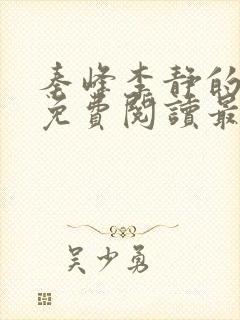 秦峰李静的
免費閱讀最
吴少勇